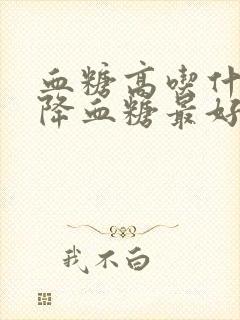 血糖高喫什
降血糖最好
我不白